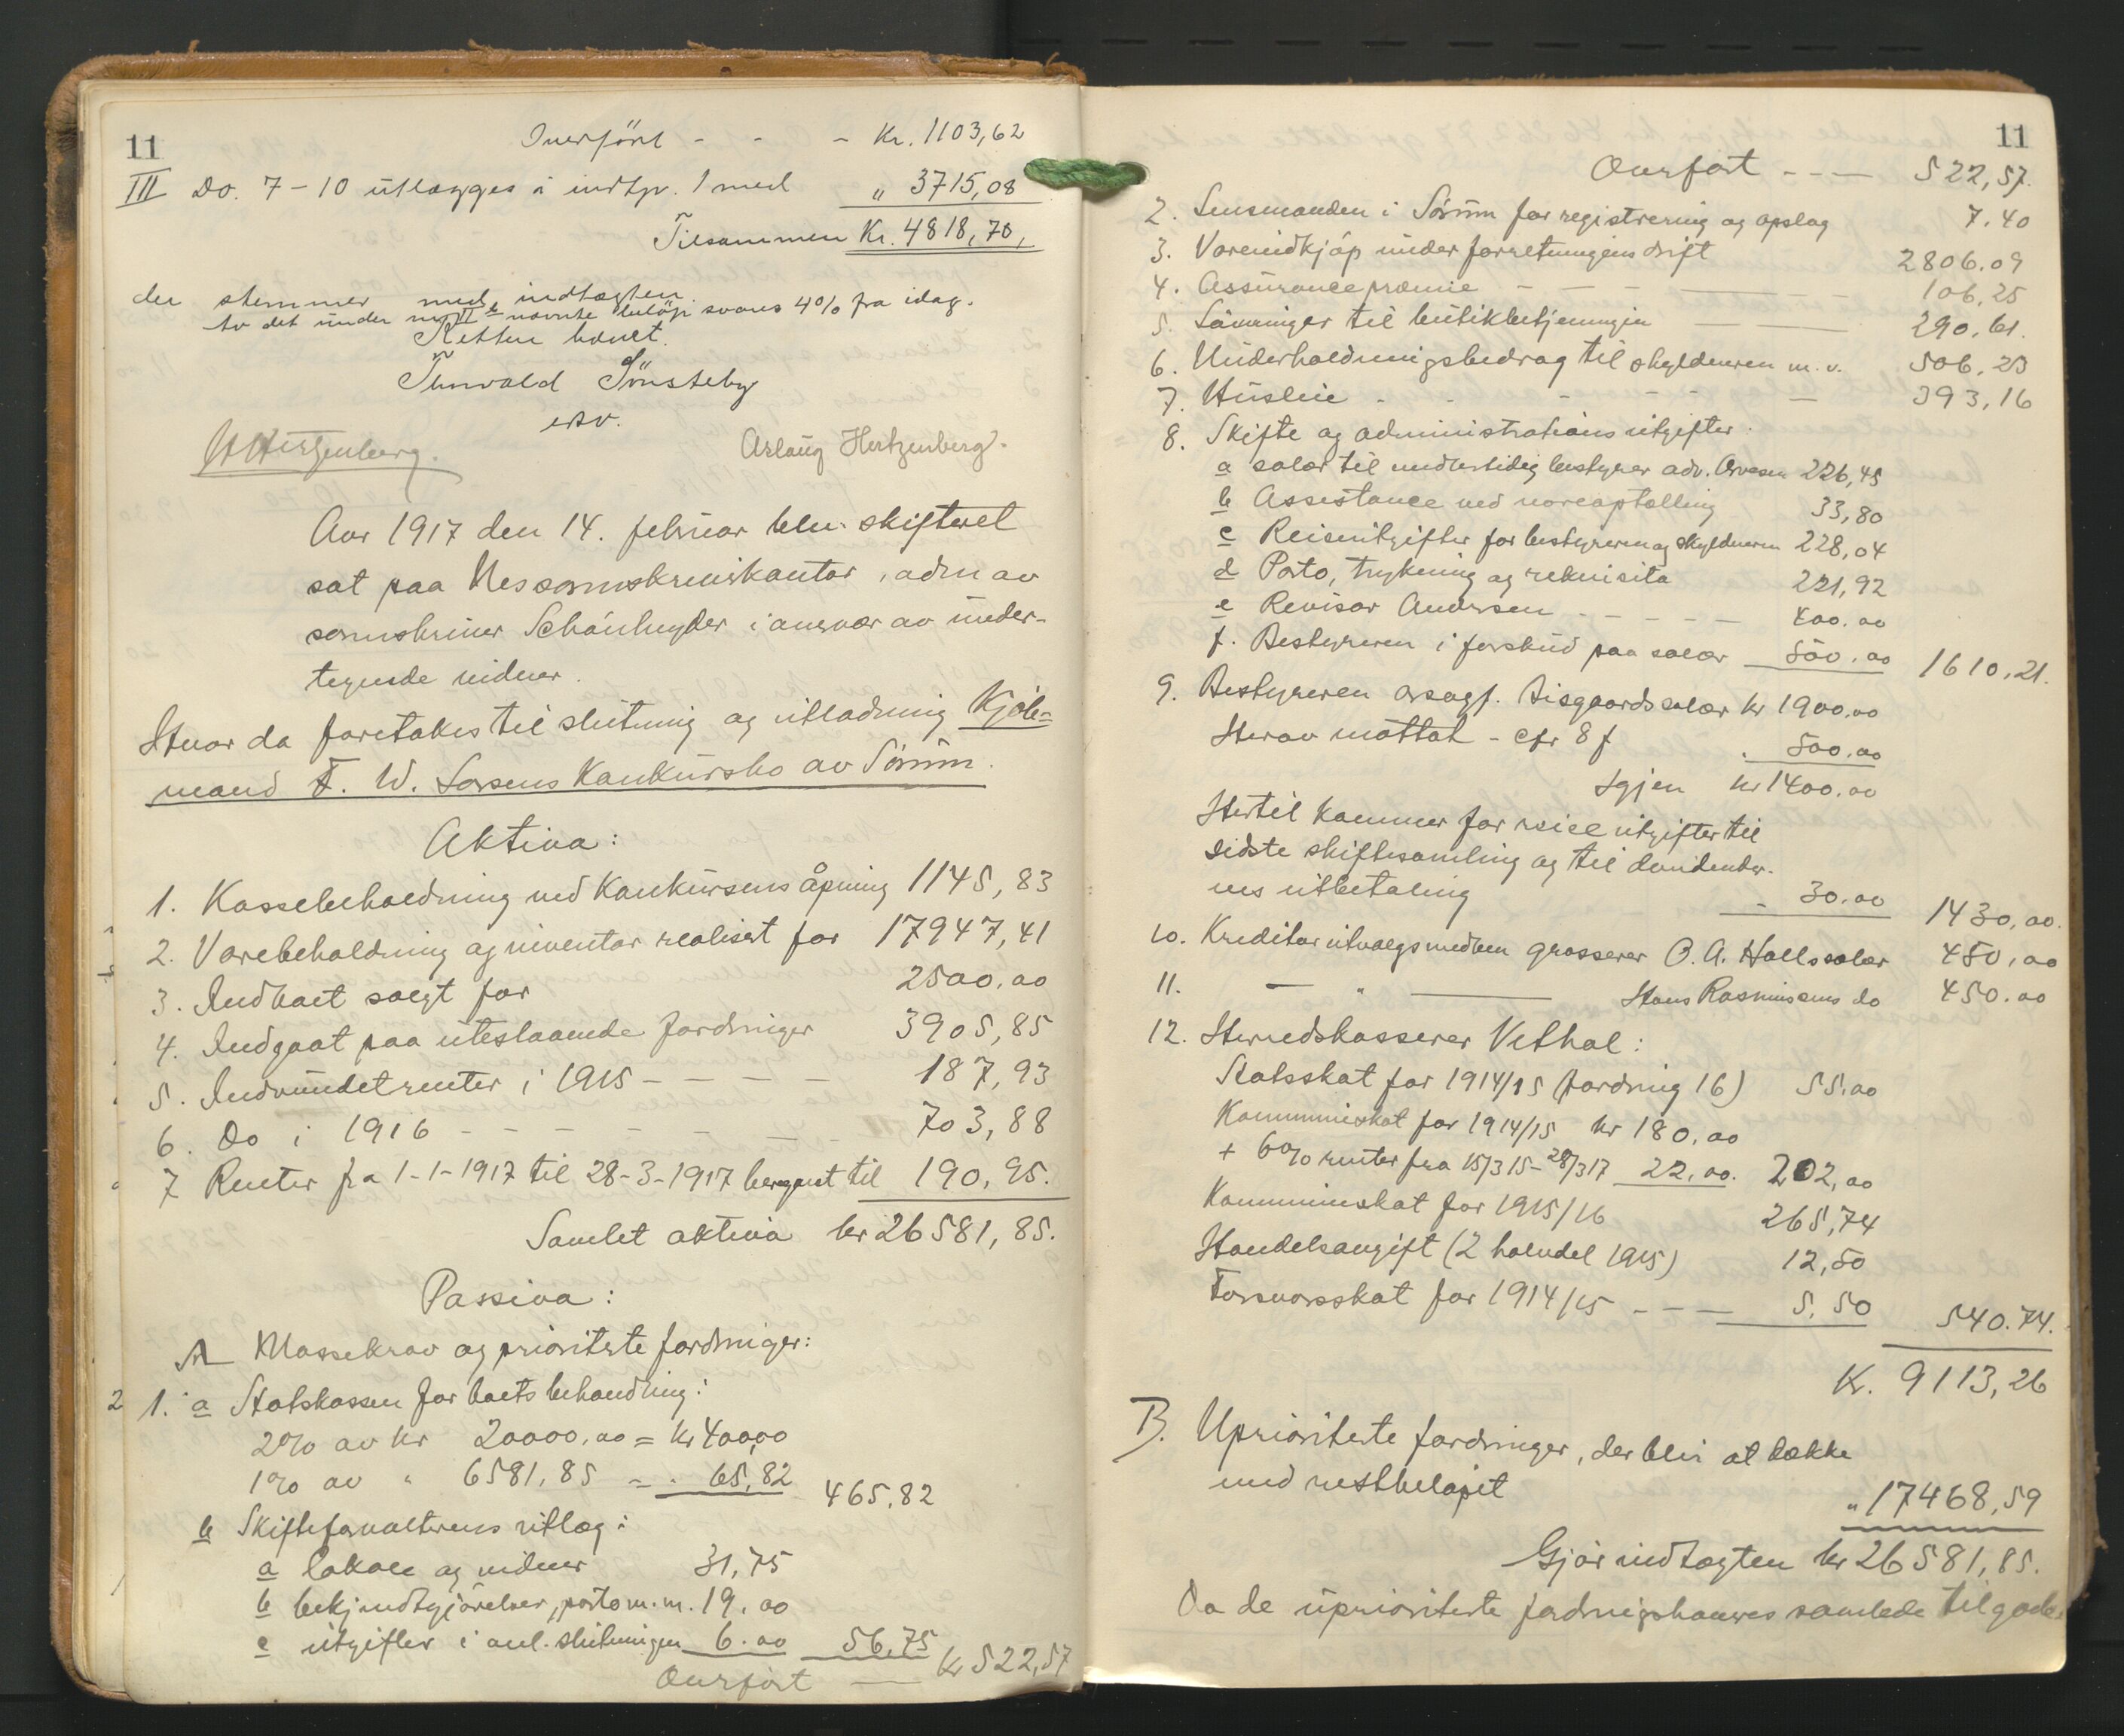 11
Overført - - - Kr. 1103,62
III Do. 7-10 utlægges i indtgr. 1 med " 3715,08
Tilsammen Kr. 4818,70,
der stemmer med indtægten.
Av det under nr II nævnte beløp svares 4% fra idag.
Retten hævet.
Thorvald Sönsteby
esv.
Hertzenberg. Aslaug Hertzenberg.
Aar 1917 den 14. februar blev skifteret
sat paa Nes sorenskriverkontor, adm av
sorenskriver Schönheyder i nærvær av under-
tegnede vidner.
Hvor da foretokes til slutning og utlodning Kjöb-
mand F. W. Larsens Konkursbo av Sörum.
Aktiva:
1. Kassebeholdning ved Konkursens åpning 1145,83
2. Varebeholdning og inventar realisert for 17947,41
3. Indboet solgt for 2500.00
4. Indgaat paa utestaaende fordringer 3905,85
5. Indvundet renter i 1915 - - - - 187,93
6. Do i 1916 - - - - - - - 703,88
7 Renter fra 1-1-1917 til 28-3-1917 beregnet til 190,95.
Samlet aktiva kr 26581,85.
Passiva:
A Massekrav og prioriterte fordringer:
2 1. a Statskassen for boets behandling:
2% av kr 20000,00 = kr 400,00
1% av " 6581,85 = - 65,82 465,82
b Skifteforvalterens utlæg:
a lokale og vidner 31,75
b bekjendtgjörelser, porto m.m. 19.00
c utgifter i anl. slutningen 6.00 56,75 kr 522,57
Overført
11
Overført - - - 522,57.
2. Lensmanden i Sörum for registrering og opslag 7.40
3. Vareindkjöp under forretningens drift 2806.09
4. Assurancepræmie - - - - - - 106,25
5. Lönninger til butikbetjeningen 290,61.
6. Underholdningsbedrag til skyldneren m. v. 506,23
7. Husleie - - - - - - 393,16
8. Skifte og administrations utgifter.
a salær til midlertidig bestyrer adv. Arvesen 226,45
b Assistance ved vareoptælling 33,80
c Reiseutgifter for bestyreren og skyldneren 228,04
d Porto, trykning og rekvisita 221,92
e Revisor Andersen - - - - - 400.00
f. Bestyreren i forskud paa salær 500.00 1610,21.
9. Bestyreren orsagf. Disgaards salær kr 1900.00
Herav mottat - cfr 8 f - 500.00
Igjen kr 1400.00
Hertil kommer for reiseutgifter til
sidste skiftesamling og til dividender-
nes utbetaling - 30.00 1430,00.
10. Kreditorutvalgsmedlem grosserer O. A. Halls salær 450,00
11. — " — Hans Rasmussens do 450.00
12. Herredskasserer Vethal:
Statsskat for 1914/15 (fordring 16) 55.00
Kommuneskat for 1914/15 kr 180.00
+ 6% renter fra 15/3 15 - 28/3 17 22,00. 202,00
Kommuneskat for 1915/16 265,74
Handelsavgift (2 halvdel 1915) 12,50
Forsvarsskat for 1914/15 - - - 5.50 540.74.
Kr. 9113,26
B. Uprioriterte fordringer, der blir at dække
med restbeløpet " 17468,59
Gjör indtægten kr 26581,85.
Da de uprioriterte fordringshaveres samlede tilgode-